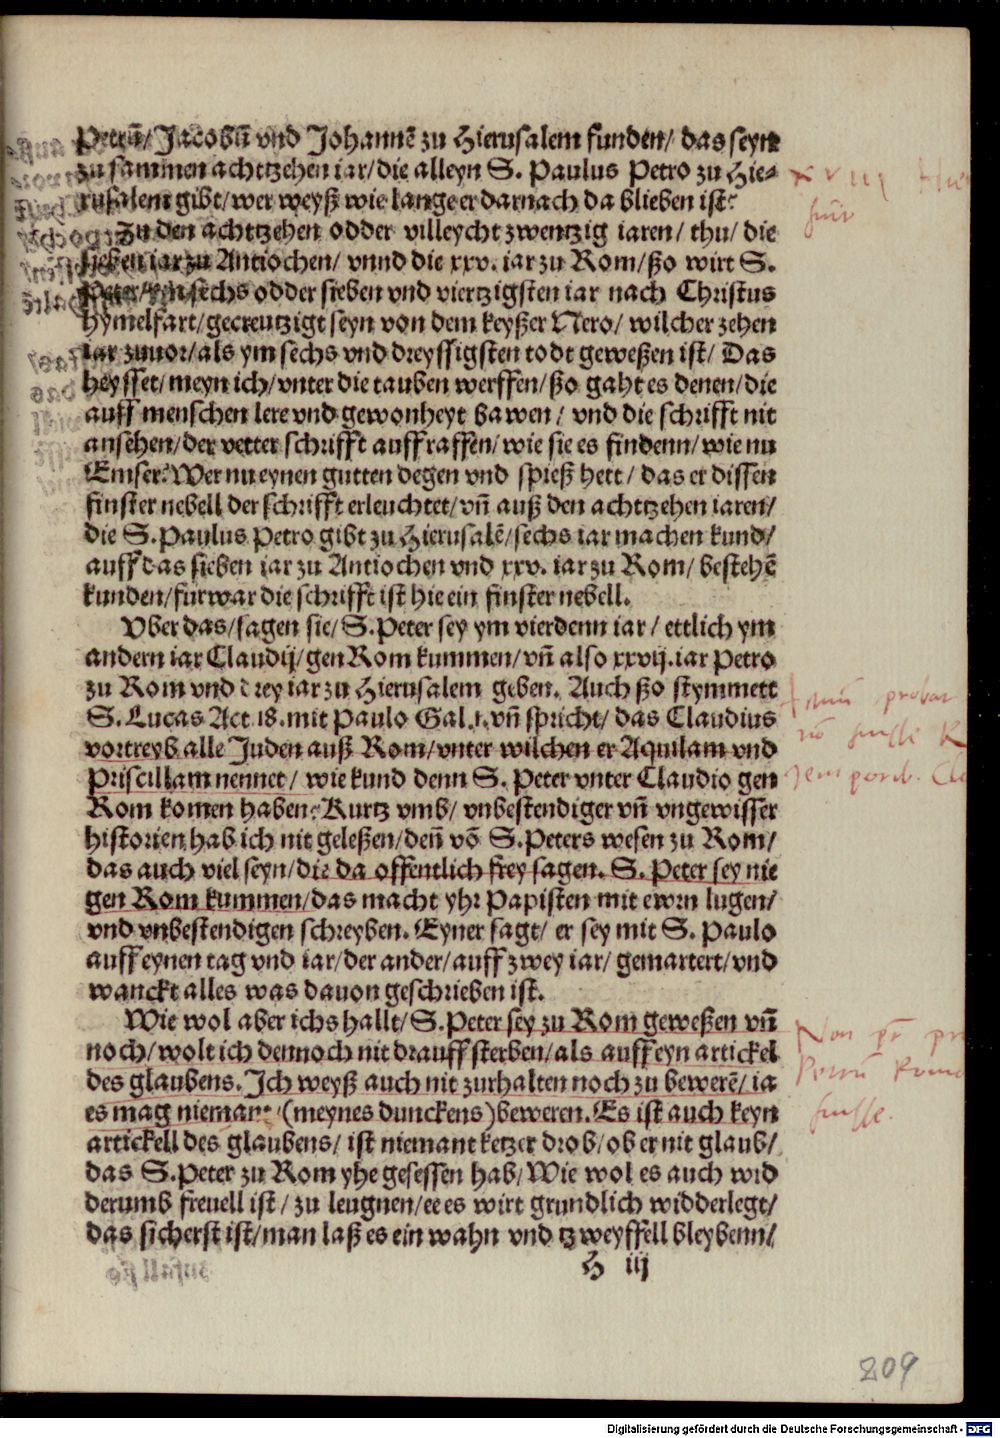 Petrū/ Jacobū vnd Johannē zu Hierusalem funden/ das seyn
zu sammen achtzehen iar/ die alleyn S. Paulus Petro zu Hie⸗
rusalem gibt/ wer weyß wie lange er darnach da blieben ist?
Zu den achtzehen odder villeycht zwentzig iaren/ thu/ die
sieben iar zu Antiochen/ vnnd die xxv. iar zu Rom/ ßo wirt S.
Peter/ ym sechs odder sieben vnd viertzigsten iar nach Christus
hymelfart/ gecreutzigt seyn von dem keyßer Nero/ wilcher zehen
iar zuuor/ als ym sechs vnd dreyssigsten todt geweßen ist/ Das
heysset/ meyn ich/ vnter die tauben werffen/ ßo gaht es denen/ die
auff menschen lere vnd gewonheyt bawen/ vnd die schrifft nit
ansehen/ der vetter schrifft auffraffen/ wie sie es findenn/ wie nu
Emser? Wer nu eynen gutten degen vnd spieß hett/ das er dissen
finster nebell der schrifft erleuchtet/ vñ auß den achtzehen iaren/
die S. Paulus Petro gibt zu Hierusalē/ sechs iar machen kund/
auff das sieben iar zu Antiochen vnd xxv. iar zu Rom/ bestehē
kunden/ furwar die schrifft ist hie ein finster nebell.
Vber das/ sagen sie/ S. Peter sey ym vierdenn iar/ ettlich ym
andern iar Claudij/ gen Rom kummen/ vñ also xxvij. iar Petro
zu Rom vnd drey iar zu Hierusalem geben. Auch ßo stymmett
S. Lucas Act. 18. mit Paulo Gal. 1. vñ spricht/ das Claudius
vortreyb alle Juden auß Rom/ vnter wilchen er Aquilam vnd
Priscillam nennet/ wie kund denn S. Peter vnter Claudio gen
Rom komen haben? Kurtz vmb/ vnbestendiger vñ vngewisser
historien hab ich nit geleßen/ deñ võ S. Peters wesen zu Rom/
das auch viel seyn/ die da offentlich frey sagen. S. Peter sey nie
gen Rom kummen/ das macht yhr Papisten mit ewrn lugen/
vnd vnbestendigen schreyben. Eyner sagt/ er sey mit S. Paulo
auff eynen tag vnd iar/ der ander/ auff zwey iar/ gemartert/ vnd
wanckt alles was dauon geschrieben ist.
Wie wol aber ichs hallt/ S. Peter sey zu Rom geweßen vñ
noch/ wolt ich dennoch nit drauff sterben/ als auff eyn artickel
des glaubens. Ich weyß auch nit zurhalten noch zu bewerē/ ia
es mag niemant (meynes dunckens) beweren. Es ist auch keyn
artickell des glaubens/ ist niemant ketzer drob/ ob er nit glaub/
das S. Peter zu Rom yhe gesessen hab/ Wie wol es auch wid
derumb freuell ist/ zu leugnen/ ee es wirt grundlich widderlegt/
das sicherst ist/ man laß es ein wahn vnd tzweyffell bleybenn/
H iij
209
Digitalisierung gefördert durch die Deutsche Forschungsgemeinschaft - DFG